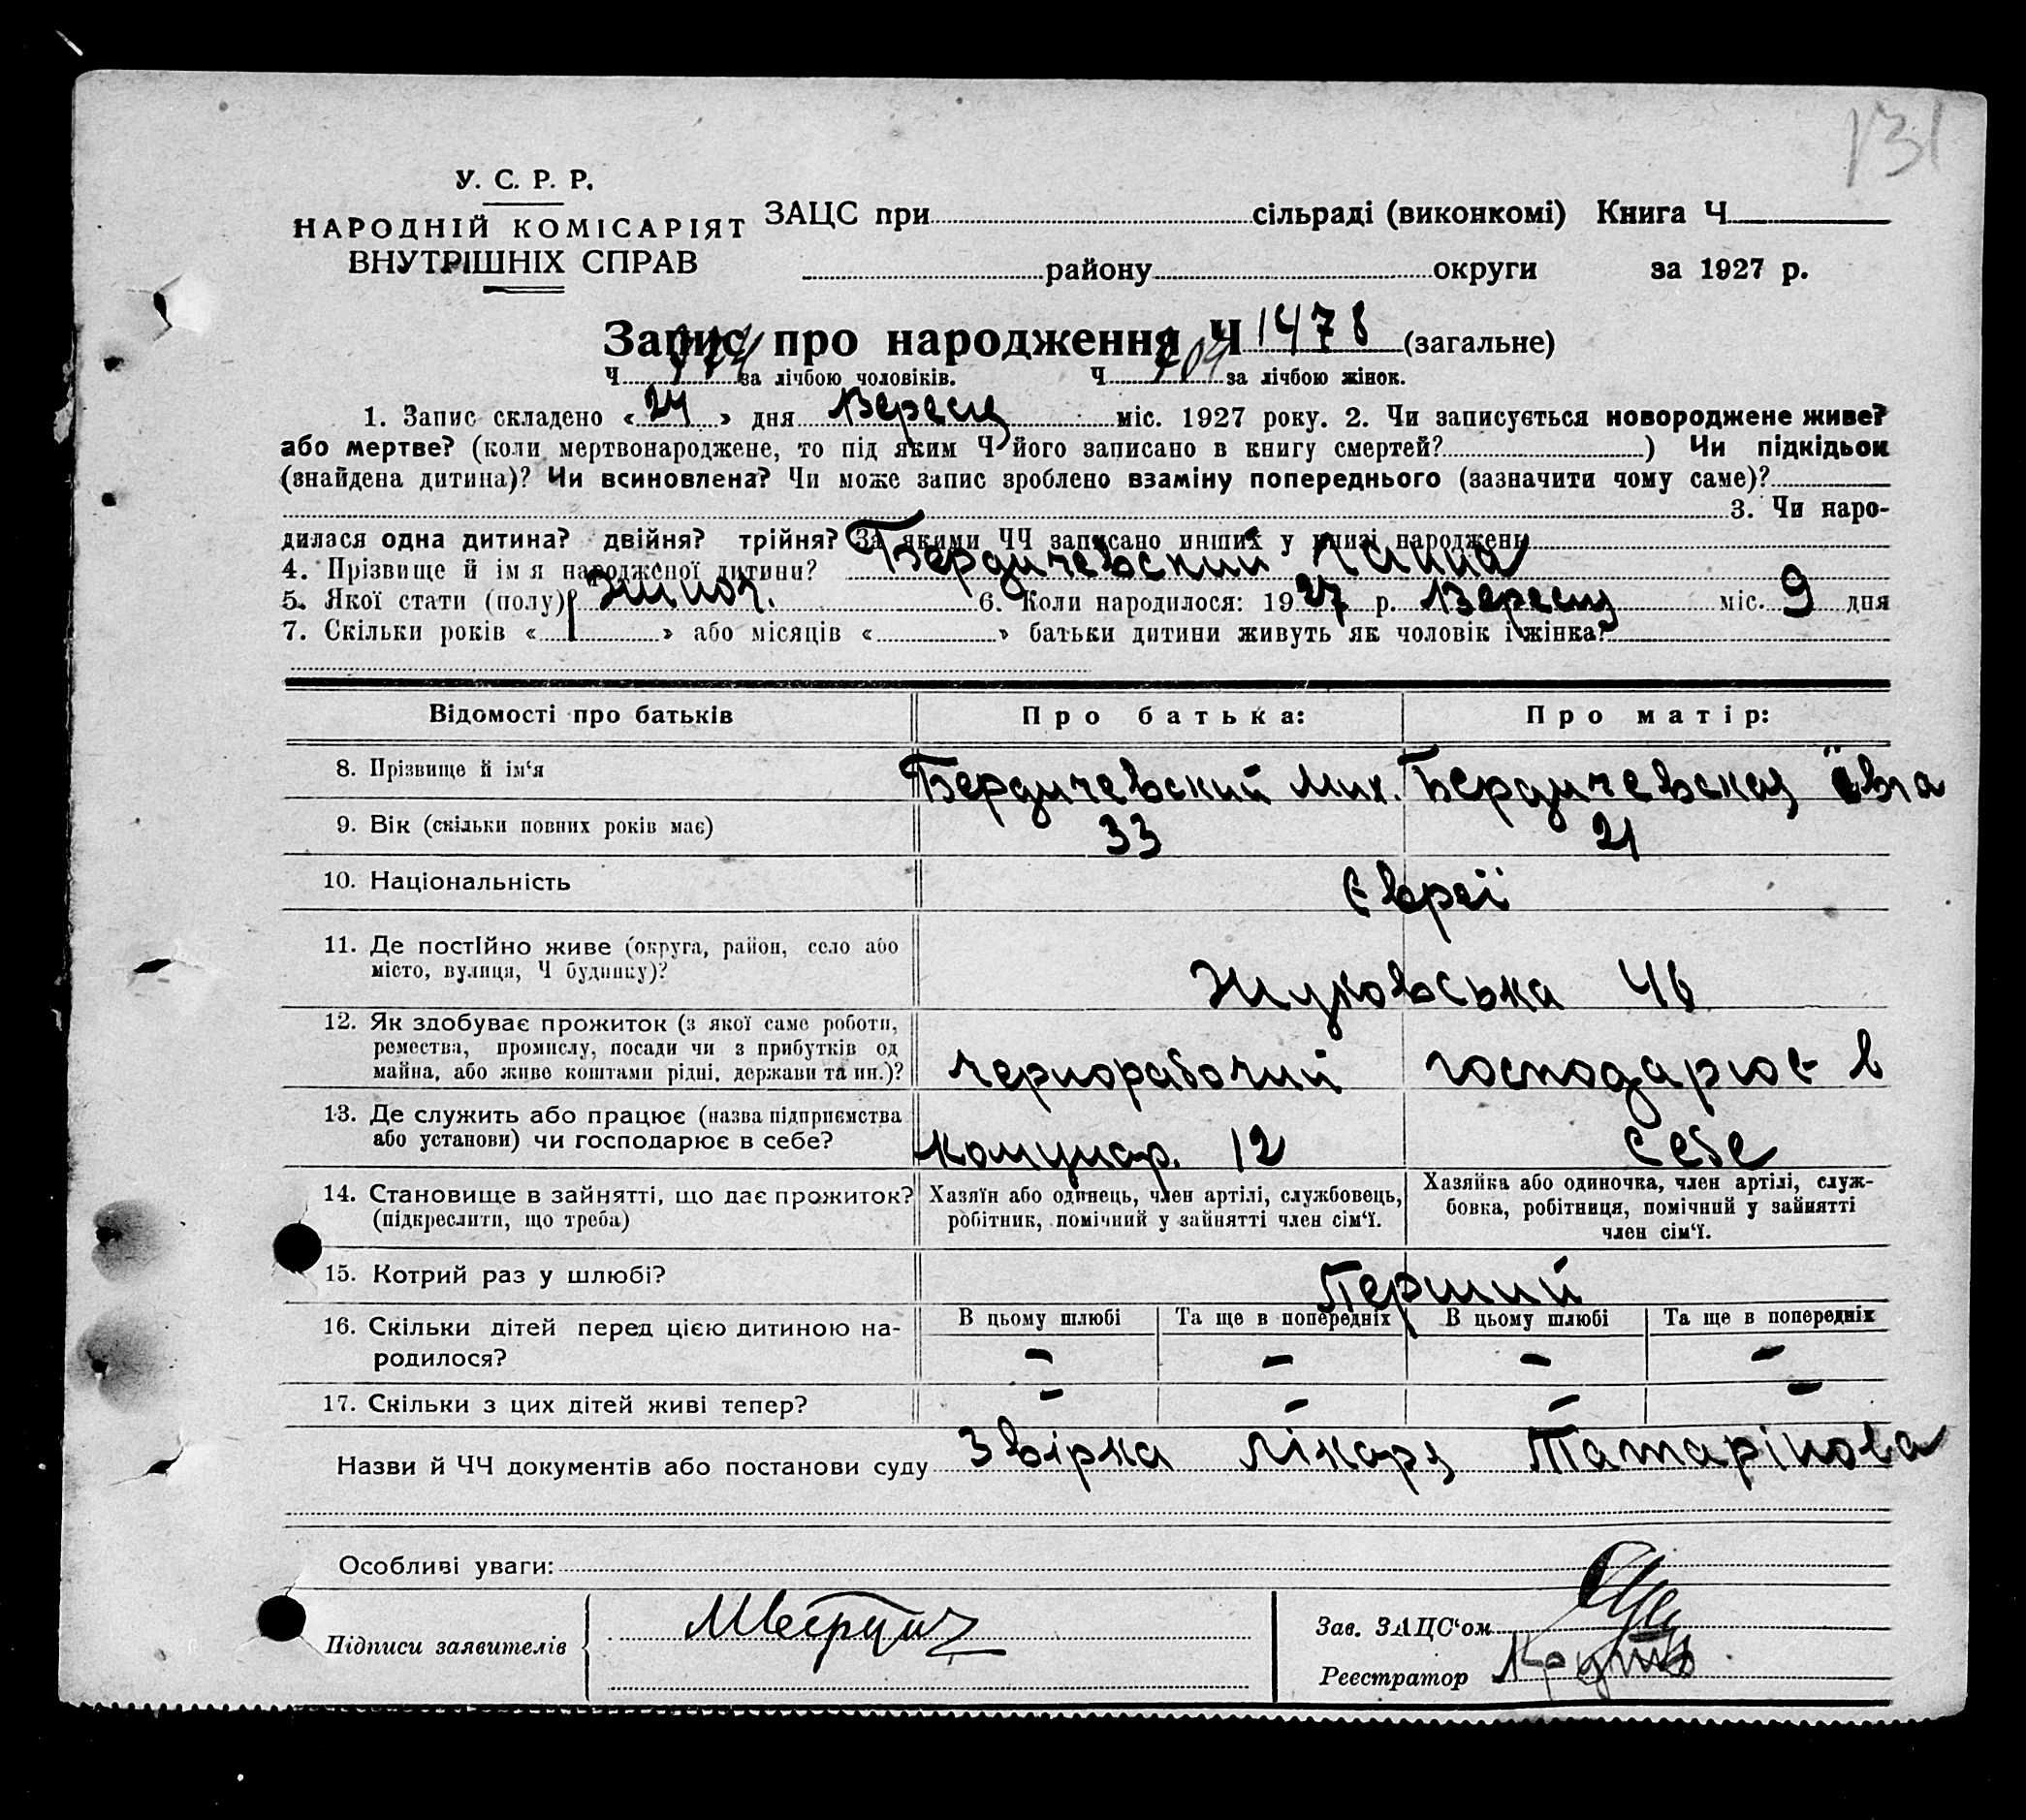 131
У. С. Р. Р.
НАРОДНІЙ КОМІСАРІЯТ
ВНУТРІШНІХ СПРАВ
ЗАЦС при сільраді (виконкомі) Книга Ч
району округи за 1927 р.
Запис про народження Ч 1478 (загальне)
Ч за лічбою чоловіків. Ч 704 за лічбою жінок.
1. Запис складено « 24 » дня Вересня міс. 1927 року. 2. Чи записується новороджене живе?
або мертве? (коли мертвонароджене, то під яким Ч його записано в книгу смертей? ) Чи підкідьок
(знайдена дитина)? Чи всиновлена? Чи може запис зроблено взаміну попереднього (зазначити чому саме)?
3. Чи наро-
дилася одна дитина? двійня? трійня? За якими ЧЧ записано инших у книзі народжень
4. Прізвище й ім'я народженої дитини? Бердичевский
5. Якої стати (полу)? жіноч. 6. Коли народилося: 1927 р. Вересня міс. 9 дня
7. Скільки років « » або місяців « » батьки дитини живуть як чоловік і жінка?
Відомості про батьків Про батька: Про матір:
8. Прізвище й ім‘я Бердичевский Мих. Бердичевская
9. Вік (скільки повних років має) 33 21
10. Національність Євреї
11. Де постІйно живе (округа, район, село або
місто, вулиця, Ч будинку)? Жуковська 46
12. Як здобуває прожиток (з якої саме роботи,
ремества, промислу, посади чи з прибутків од
майна, або живе коштами рідні, держави та ин.)? чернорабочий господарює в
13. Де служить або працює (назва підприємства
або установи) чи господарює в себе? комунар. 12 себе
14. Становище в зайнятті, що дає прожиток?
(підкреслити, що треба)
Хазяїн або одинець, член артілі, службовець,
робітник, помічний у зайнятті член сім‘ї.
Хазяйка або одиночка, член артілі, служ-
бовка, робітниця, помічний у зайнятті
член сім‘ї.
15. Котрий раз у шлюбі? Перший
16. Скільки дітей перед цією дитиною на-
родилося?
В цьому шлюбі Та ще в попередніх В цьому шлюбі Та ще в попередніх
- - - -
17. Скільки з цих дітей живі тепер? - - - -
Назви й ЧЧ документів або постанови суду Звірка лікаря Татарінова
Особливі уваги:
Підписи заявителів
Зав. ЗАЦС‘ом
Реєстратор